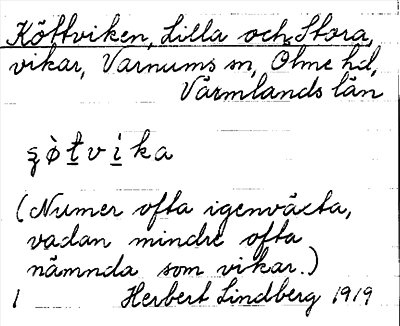 Köttviken, Lilla och Stora,
vikar, Varnums sn, Ölme hd,
Värmlands län
ʂø̀t̲vi̲ka
(Numer ofta igenväxta,
vadan mindre ofta
nämnda som vikar.)
1 Herbert Lindberg 1919